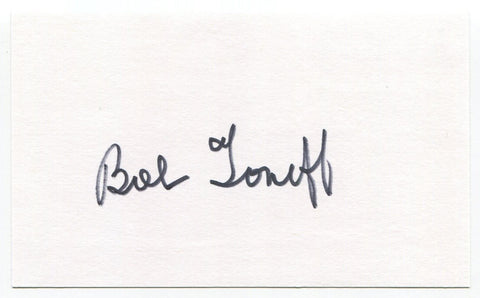 Bob Toneff